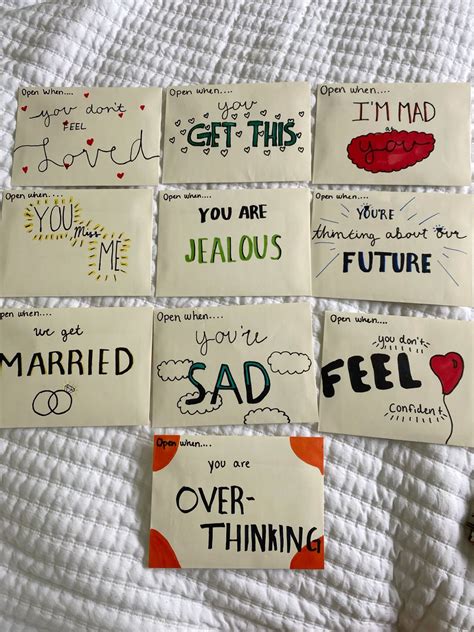 Open When....
you don't
FEEL
Loved
Open when....
you
GET THIS
Open when....
I'M MAD
at
you
Open when....
YOU
Miss
ME
Open when....
YOU ARE
JEALOUS
Open when....
YOU'RE
thinking about our
FUTURE
pen when....
we get
MARRIED
Open when....
you're
SAD
Open when....
you don't
FEEL
Confident
Open when....
you are
OVER-
THINKING